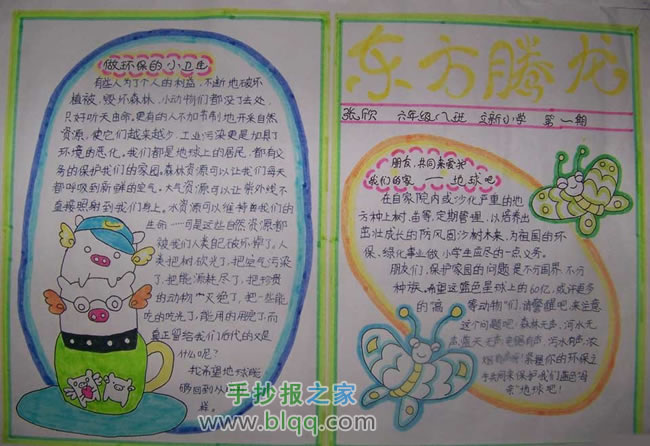 做环保的小卫生
有些人为了个人的利益，不断地破坏
植被，毁坏森林，小动物们都没了去处，
只好听天由命。更有的人不加节制地开采自然
资源，使它们越来越少，工业污染更是加具了
环境的恶化。我们都是地球上的居民，都有义
务的保护我们的家园。森林资源可以让我们每天
都呼吸到新鲜的空气，大气资源可以让紫外线不
直接照射到我们身上。水资源可以维持着我们的
生命一可是这些自然资源都
被我们人类自己破坏掉了。人
类把树砍光了，把空气污染
了，把能源耗尽了，把珍贵
的动物灭绝了，把一些能
吃的吃光了，能用的用完了而
真正留给我们后代的又是
什么呢？
我希望地球能
够回到从
样。
东方腾龙
张欣 六年级八班 立新小学 第一期
朋友，共同来爱护
我们的家——地球吧
在自家院内或沙化严重的地
方种上树、苗等，定期管理，以培养出
茁壮成长的防风固沙树木来，为祖国的环
保、绿化事业做小学生应尽的一点义务。
朋友们，保护家园的问题是不分国界，不分
种族，希望这蓝色星球上的60亿，或许更多
的"高等动物"们，请警醒吧，来注意
这个问题吧：森林无声，河水无
声，蓝天无声
共同来保护我们蓝色"母
亲"地球吧！
手抄报之家
www.blqq.com